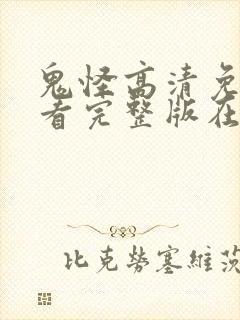 鬼怪高清免
看完整版在
比克勞塞維茨